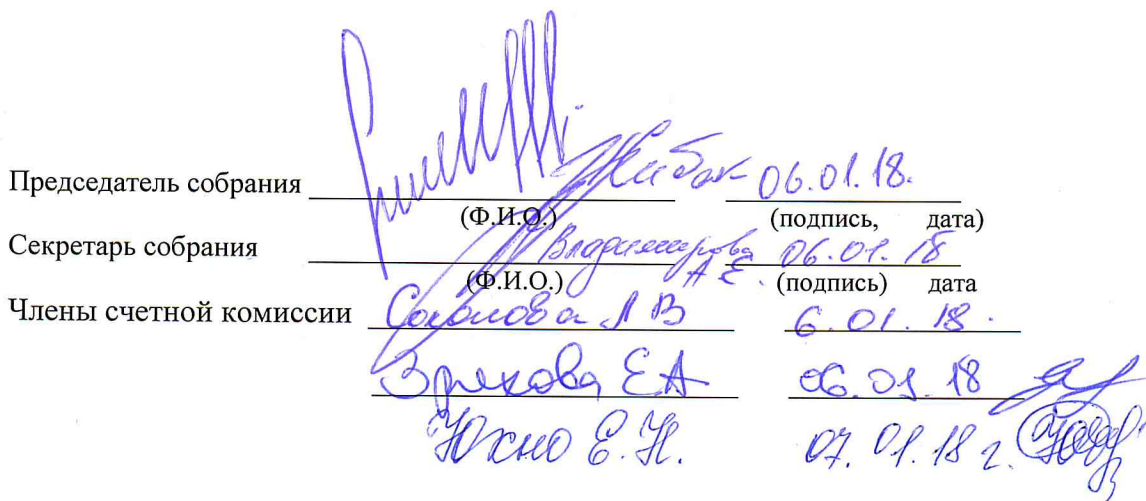 Председатель собрания 06.01.18.
(Ф.И.О.) (подпись, дата)
Секретарь собрания Владимирова А Е. 06.01.18
(Ф.И.О.) (подпись) дата
Члены счетной комиссии Соколова Л В 6.01.18.
Зрехова ЕА 06.01.18
Юхно Е.Н. 07.01.18 г.